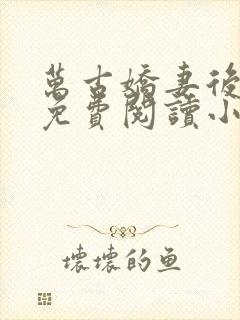 萬古嬌妻後
免費閱讀小
壞壞的鱼